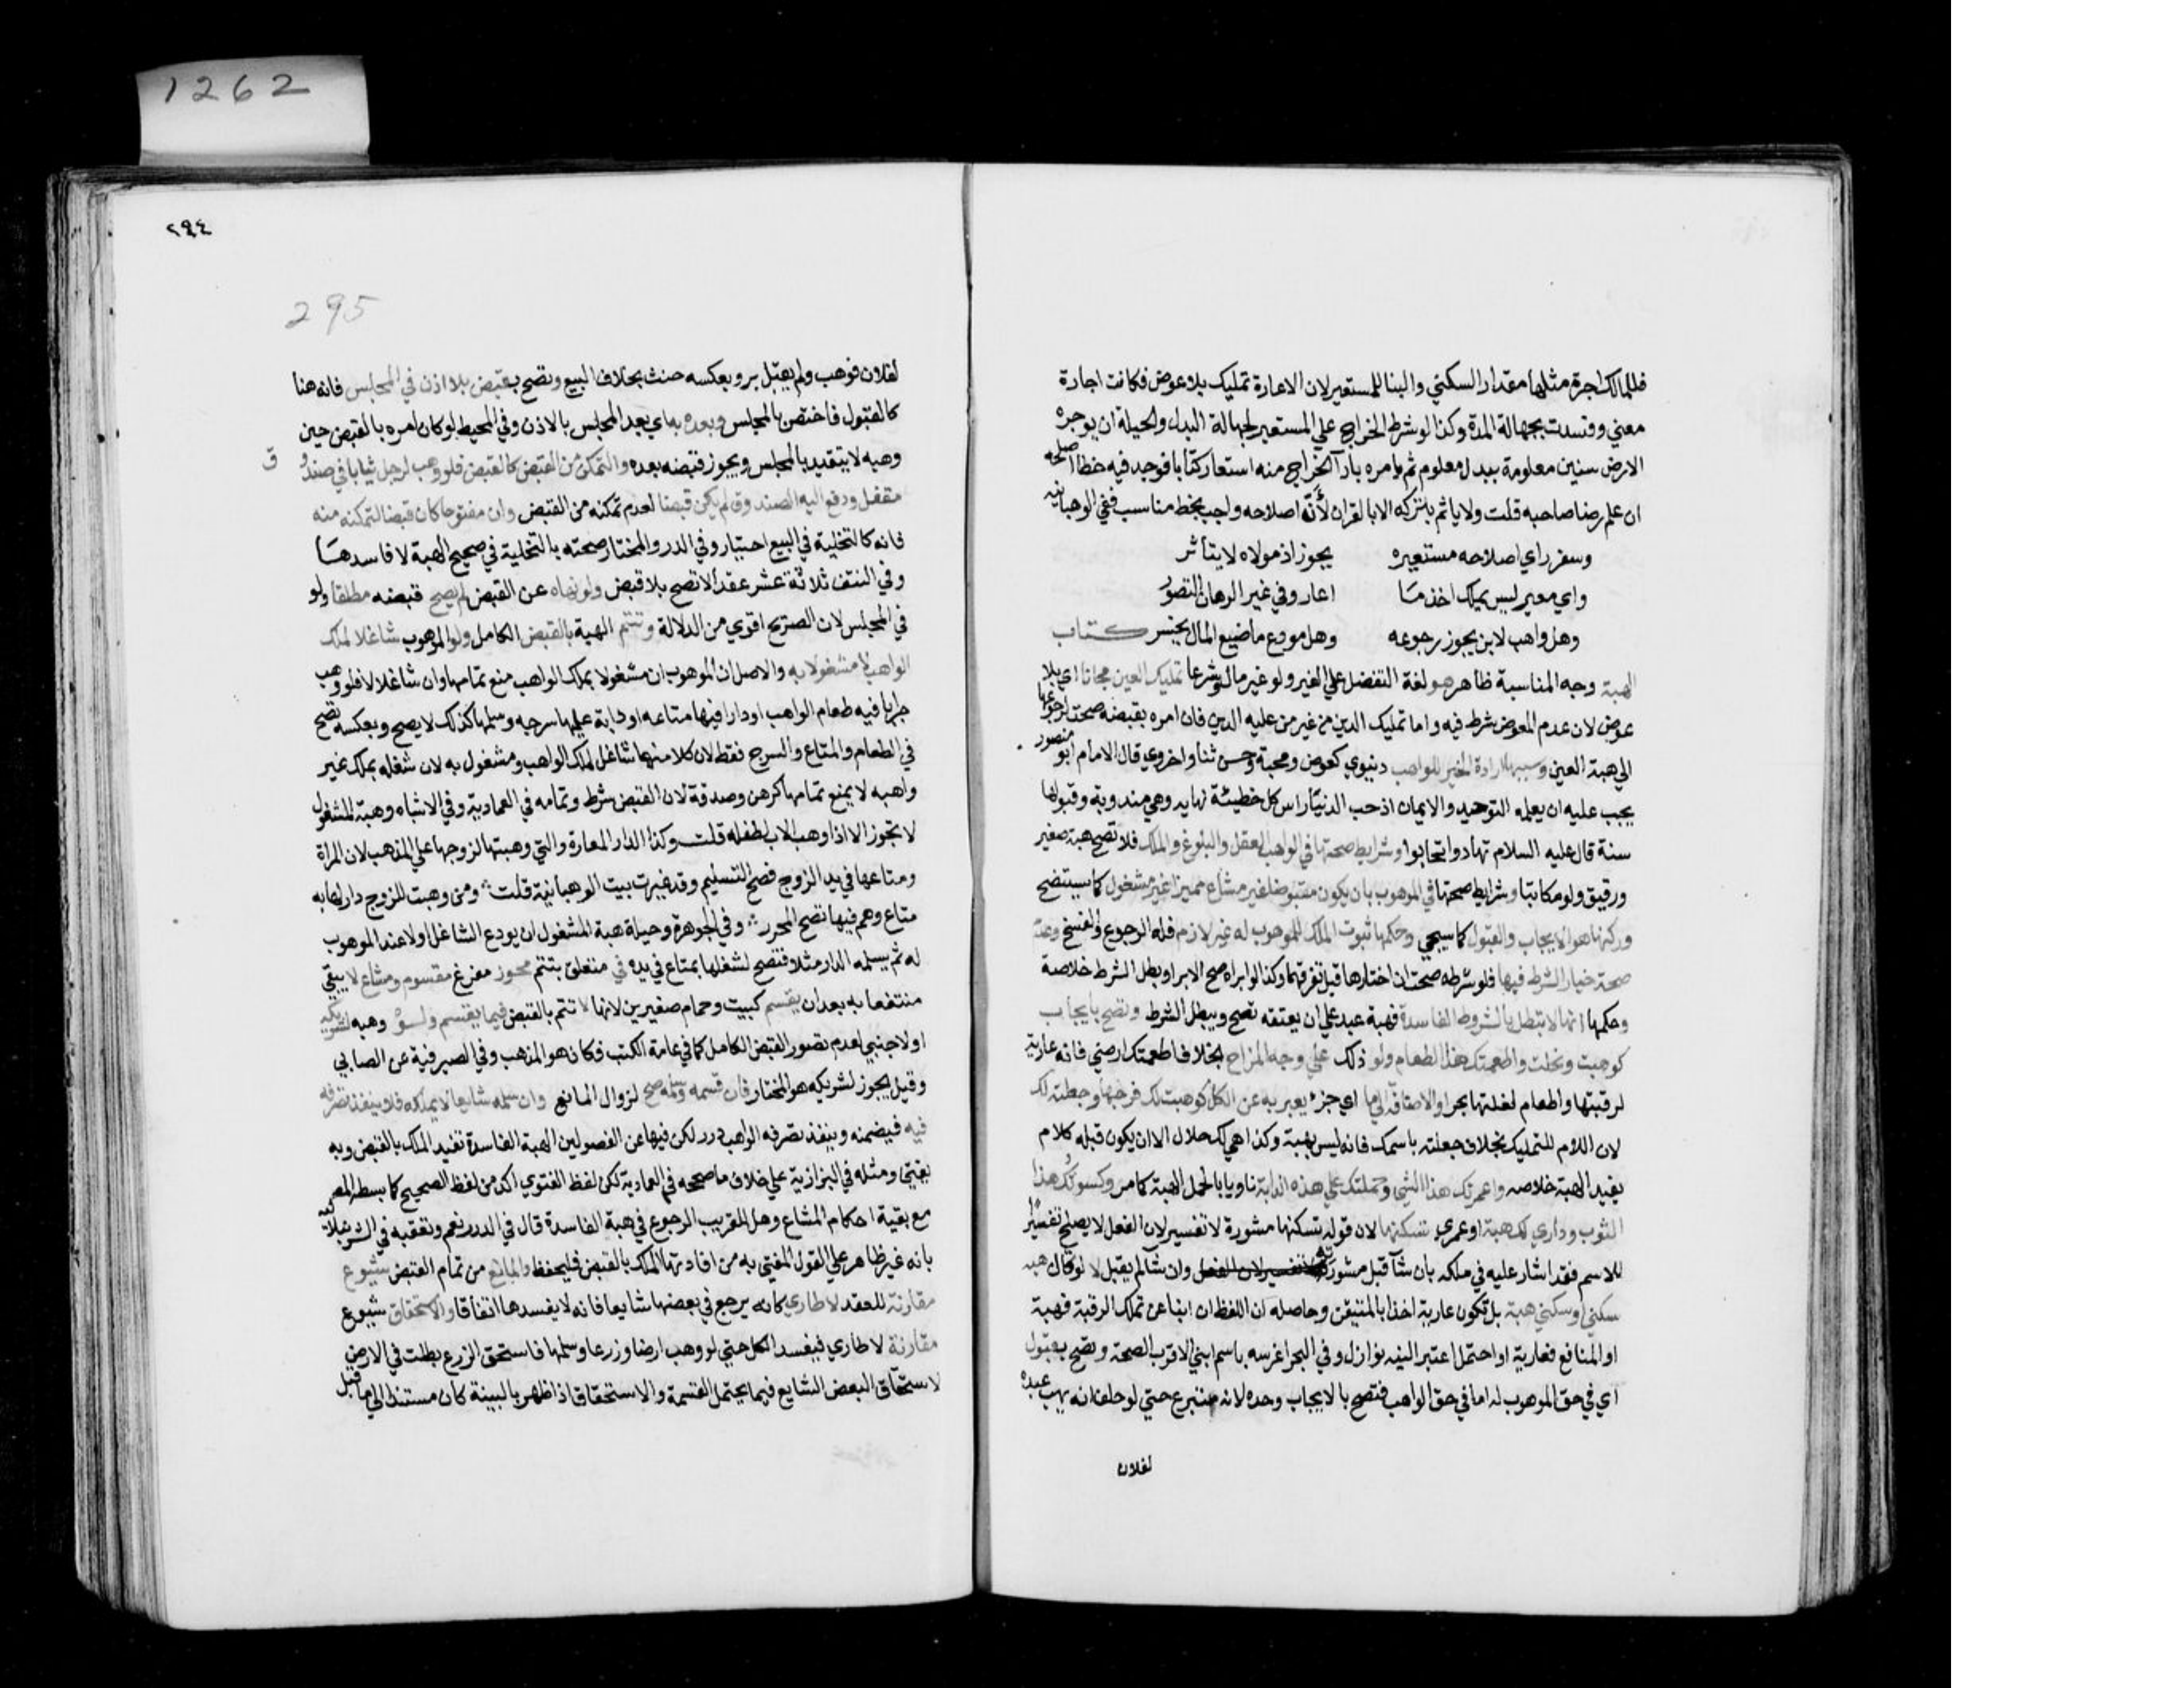 فللمالك اجرة مثلها مقدار السكني والبنا للمستعير لان الاعارة تمليك بلا عوض فكانت اجارة
معني وفسدت بجهالة المدة وكذا لو شرط الخراج علي المستعير لجهالة البدل والحيلة ان يوجره
الارض سنين معلومة ببدل معلوم ثم يامره بادآ الخراج منه استعار كتابا فوجد فيه خطا اصلحه
ان علم رضا صاحبه قلت ولا ياثم بتركه الا بالقران لأنّه اصلاحه واجب بخط مناسب ففي الوهبانيه
وسفر راي اصلاحه مستعيره يجوز اذ مولاه لا يتأثر
واي معير ليس يملك اخذ مَا اعار وفي غير الرهان التصوّر
وهل واهب لابن يجوز رجوعه وهل مودع ما ضيع المال يخسر كتاب
الهبة وجه المناسبة ظاهر هو لغة التفضل علي الغير ولو غير مال وشرعا تمليك العين مجانا اي بلا
عوض لان عدم العوض شرط فيه واما تمليك الدين من غير من عليه الدين فان امره بقبضه صحت لرجوعها
الي هبة العين وسببها ارادة الخير للواهب دنيوي كعوض ومحبة وحسن ثنا واخروي قال الامام ابو منصور
يجب عليه ان يعلم التوحيد والايمان اذ حب الدنيا راس كل خطيئة نهايه وهي مندوبة وقبولها
سنة قال عليه السلام تهادوا تحابوا وشرايط صحتها في الواهب العقل والبلوغ والملك فلا تصح هبة صغير
ورقيق ولو مكاتبا وشرايط صحتها في الموهوب بان يكون مقبوضا غير مشاع مميزا غير مشغول كما سيتضح
وركنها هو الايجاب والقبول كما سيجي وحكمها ثبوت الملك للموهوب له غير لازم فله الرجوع والفسخ وعدم
صحة خيار الشرط فيها فلو شرطه صحت ان اختارها قبل تفرقهما وكذا لو ابراه صح الابرا وبطل الشرط خلاصة
وحكمها انها لا تبطل بالشروط الفاسدة فهبة عبد علي ان يعتقه تصح ويبطل الشرط وتصح بايجاب
كوهبت ونحلت واطعمتك هذا الطعام ولو ذلك علي وجه المزاح بخلاف اطعمتك ارضي فانه عارية
لرقبتها واطعام لغلتها بحر او الاضافة الي ما اي جزء يعبر به عن الكل كوهبت لك فرجها وجعلته لك
لان اللام للتمليك بخلاف جعلته باسمك فانه ليس بهبة وكذا هي لك حلال الا ان يكون قبله كلام
يفيد الهبة خلاصه واعمرتك هذا الشي وحملتك علي هذه الدابة ناويا بالحمل الهبة كما مر وكسوتك هذا
الثوب وداري لك هبة او عمري تسكنها لان قوله تسكنها مشورة لا تفسير لان الفعل لا يصلح تفسيرا
للاسم فقد اشار عليه في ملكه بان شآ قبل مشورته وان شآ لم يقبل لا لو قال هبه
سكني او سكني هبة بل تكون عارية اخذا بالمتيقن وحاصله ان اللفظ ان انبا عن تملك الرقبة فهبة
او المنافع فعارية او احتمل اعتبر النيه نوازل وفي البحر اغرسه باسم ابني الاقرب الصحة وتصح بقبول
اي في حق الموهوب له اما في حق الواهب فتصح بالايجاب وحده لانه متبرع حتي لو حلف انه يهب عبده
لفلان
1262
٢٩٤
295
لفلان فوهب ولم يقبل بر وبعكسه حنث بخلاف البيع وتصح بقبض بلا اذن في المجلس فانه هنا
كالقبول فاختص بالمجلس وبعده به اي بعد المجلس بالاذن وفي المحيط لو كان امره بالقبض حين
وهبه لا يتقيد بالمجلس ويجوز قبضه بعده والتمكن من القبض كالقبض فلو وهب لرجل ثيابا في صندو ق
مقفل ودفع اليه الصندوق لم يكن قبضا لعدم تمكنه من القبض وان مفتوحا كان قبضا لتمكنه منه
فانه كالتخلية في البيع اختيار وفي الدر والمختار صحته بالتخلية في صحيح الهبة لا فاسدهَا
وفي النتف ثلاثة عشر عقدا لا تصح بلا قبض ولو نهاه عن القبض لم يصح قبضه مطلقا ولو
في المجلس لان الصريح اقوي من الدلالة وتتم الهبة بالقبض الكامل ولو الموهوب شاغلا لملك
الواهب لا مشغولا به والاصل ان الموهوب ان مشغولا بملك الواهب منع تمامها وان شاغلا لا فلو وهب
جرابا فيه طعام الواهب او دارا فيها متاعه او دابة عليها سرجه وسلمها كذلك لا يصح وبعكسه تصح
في الطعام والمتاع والسرج فقط لان كلا منها شاغل لملك الواهب ومشغول به لان شغله بملك غير
واهبه لا يمنع تمامها كرهن وصدقة لان القبض شرط وتمامه في العمادية وفي الاشباه وهبة المشغول
لا تجوز الا اذا وهب الاب لطفله قلت وكذا الدار المعارة والتي وهبتها لزوجها علي المذهب لان المراة
ومتاعها في يد الزوج فصح التسليم وقد غيرت بيت الوهبانية قلت ومن وهبت للزوج دارا لها به
متاع وهم فيها تصح المحرر وفي الجوهرة وحيلة هبة المشغول ان يودع الشاغل اولا عند الموهوب
له ثم يسلمه الدار مثلا فتصح لشغلها بمتاع في يده في متعلق بتتم محوز مفرغ مقسوم ومشاع لا يبقي
منتفعا به بعد ان يقسم كبيت وحمام صغيرين لانها لا تتم بالقبض فيما يقسم ولو وهبه لشريكه
او لاجنبي لعدم تصور القبض الكامل كما في عامة الكتب فكان هو المذهب وفي الصيرفية عن العتابي
وقيل يجوز لشريكه هو المختار فان قسمه وسلمه صح لزوال المانع وان سلمه شايعا لا يملكه فلا ينفذ تصرفه
فيه فيضمنه وينفذ تصرفه الواهب درر لكن فيها عن الفصولين الهبة الفاسدة تفيد الملك بالقبض وبه
يفتي ومثله في البزازية علي خلاف ما صححه في العمادية لكن لفظ الفتوي اكد من لفظ الصحيح كما بسطه المص
مع بقية احكام المشاع وهل للقريب الرجوع في هبة الفاسدة قال في الدرر نعم وتعقبه في الشرنبلالية
بانه غير ظاهر علي القول المفتي به من افادتها الملك بالقبض فليحفظ والمانع من تمام القبض شيوع
مقارنة للعقد لا طاري كانه يرجع في بعضها شايعا فانه لا يفسدها اتفاقا والاستحقاق شيوع
مقارنة لا طاري فيفسد الكل حتي لو وهب ارضا وزرعا وسلمها فاستحق الزرع بطلت في الارض
لاستحقاق البعض الشايع فيما يحتمل القسمة والاستحقاق اذا ظهر بالبينة كان مستندا الي ما قبل